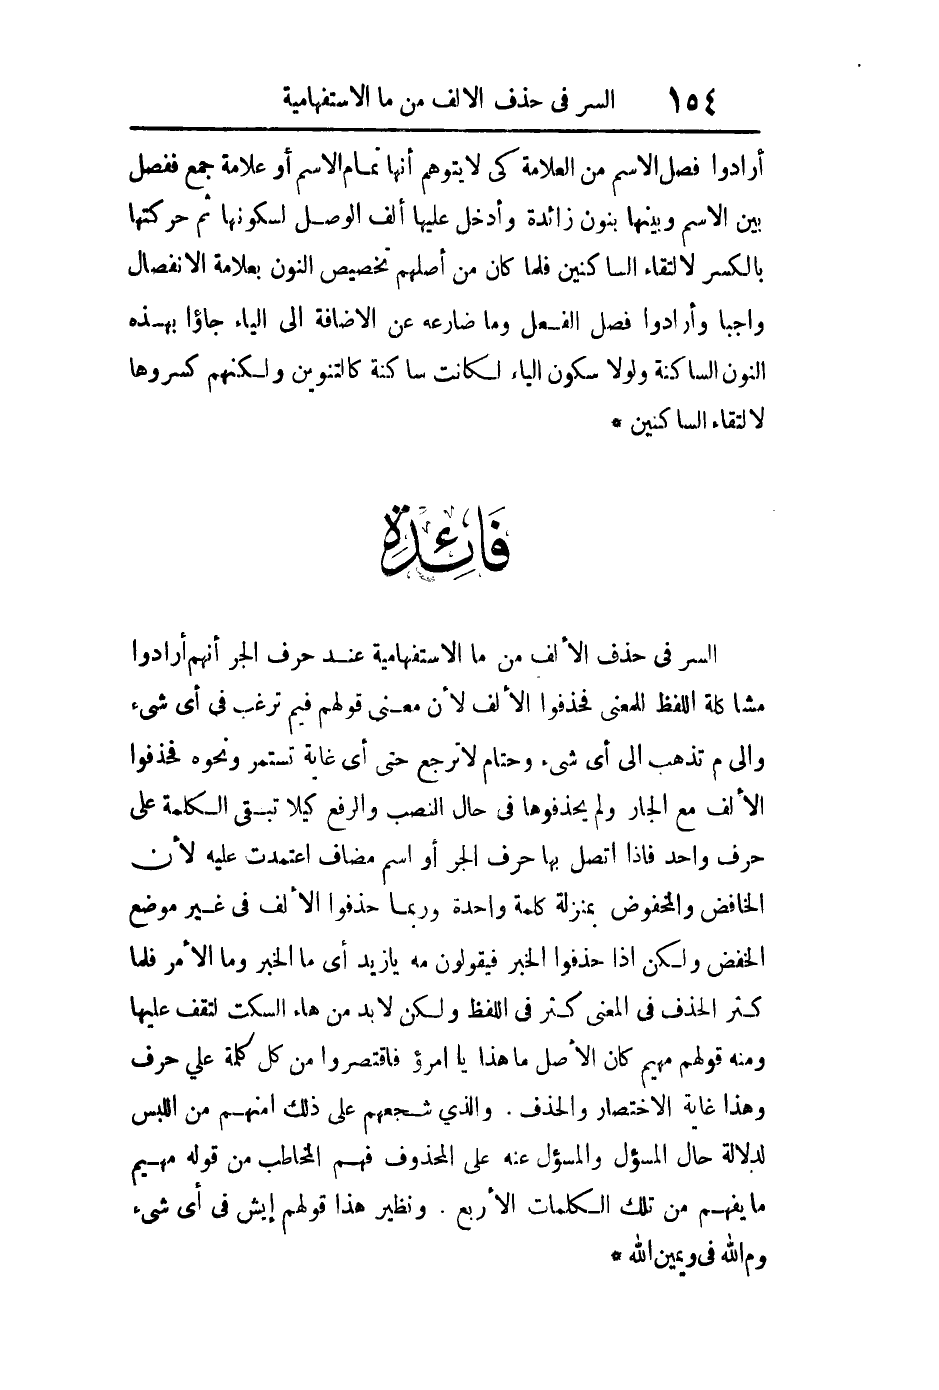 ١٥٤ السر فى حذف الالف من ما الاستفهامية
أرادوا فصل الاسم من العلامة كى لا يتوهم أنها تمام الاسم أو علامة جمع ففصل
بين الاسم وبينها بنون زائدة وأدخل عليها ألف الوصل لسكونها ثم حركتها
بالكسر لالتقاء الساكنين فلما كان من أصلهم تخصيص النون بعلامة الانفصال
واجبا وأرادوا فصل الفعل وما ضارعه عن الاضافة الى الياء جاؤا بهذه
النون الساكنة ولولا سكون الياء لكانت ساكنة كالتنوين ولكنهم كسروها
لالتقاء الساكنين *
فَائِدَة
السر فى حذف الألف من ما الاستفهامية عند حرف الجر أنهم أرادوا
مشاكلة اللفظ للمعنى فحذفوا الألف لأن معنى قولهم فيم ترغب فى أى شىء
والى م تذهب الى أى شىء وحتام لا ترجع حتى أى غاية تستمر ونحوه فحذفوا
الألف مع الجار ولم يحذفوها فى حال النصب والرفع كيلا تبقى الكلمة على
حرف واحد فاذا اتصل بها حرف الجر أو اسم مضاف اعتمدت عليه لأن
الخافض والمخفوض بمنزلة كلمة واحدة وربما حذفوا الألف فى غير موضع
الخفض ولكن اذا حذفوا الخبر فيقولون مه يازيد أى ما الخبر وما الأمر فلما
كثر الحذف فى المعنى كثر فى اللفظ ولكن لابد من هاء السكت لتقف عليها
ومنه قولهم مهيم كان الأصل ما هذا يا امرؤ فاقتصروا من كل كلمة علي حرف
وهذا غاية الاختصار والحذف . والذي شجعهم على ذلك امنهم من اللبس
لدلالة حال المسؤل والمسؤل عنه على المحذوف فهم المخاطب من قوله مهيم
ما يفهم من تلك الكلمات الأربع . ونظير هذا قولهم إيش فى أى شىء
وم الله فى ويمين الله *